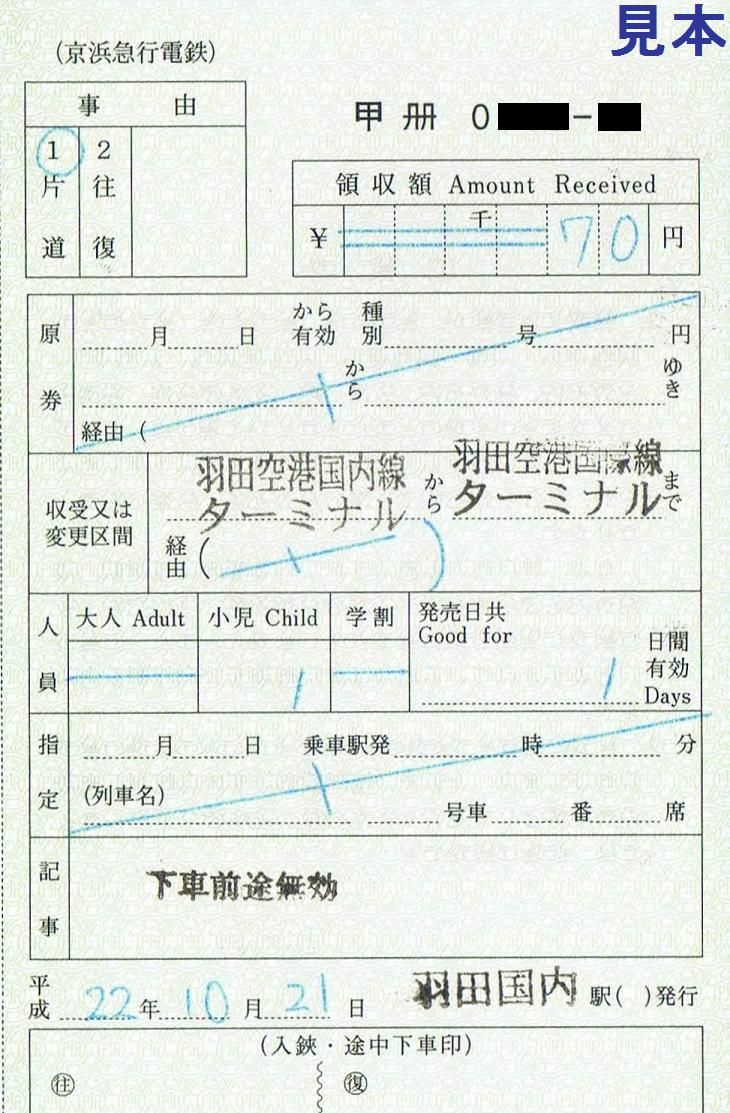 見本
(京浜急行電鉄)
事由
1 片道
2 往復
甲 册 0 -
領収額 Amount Received
¥ 千 70 円
原券
月 日 から有効 種別 号 円
から ゆき
経由 (
収受又は変更区間
羽田空港国内線ターミナル から 羽田空港国際線ターミナル まで
経由 ( )
人員
大人 Adult 小児 Child 学割 発売日共 Good for
1 1 日間有効 Days
指定
月 日 乗車駅発 時 分
(列車名)
号車 番 席
記事
下車前途無効
平成 22 年 10 月 21 日 羽田国内 駅( )発行
(入鋏・途中下車印)
往 復